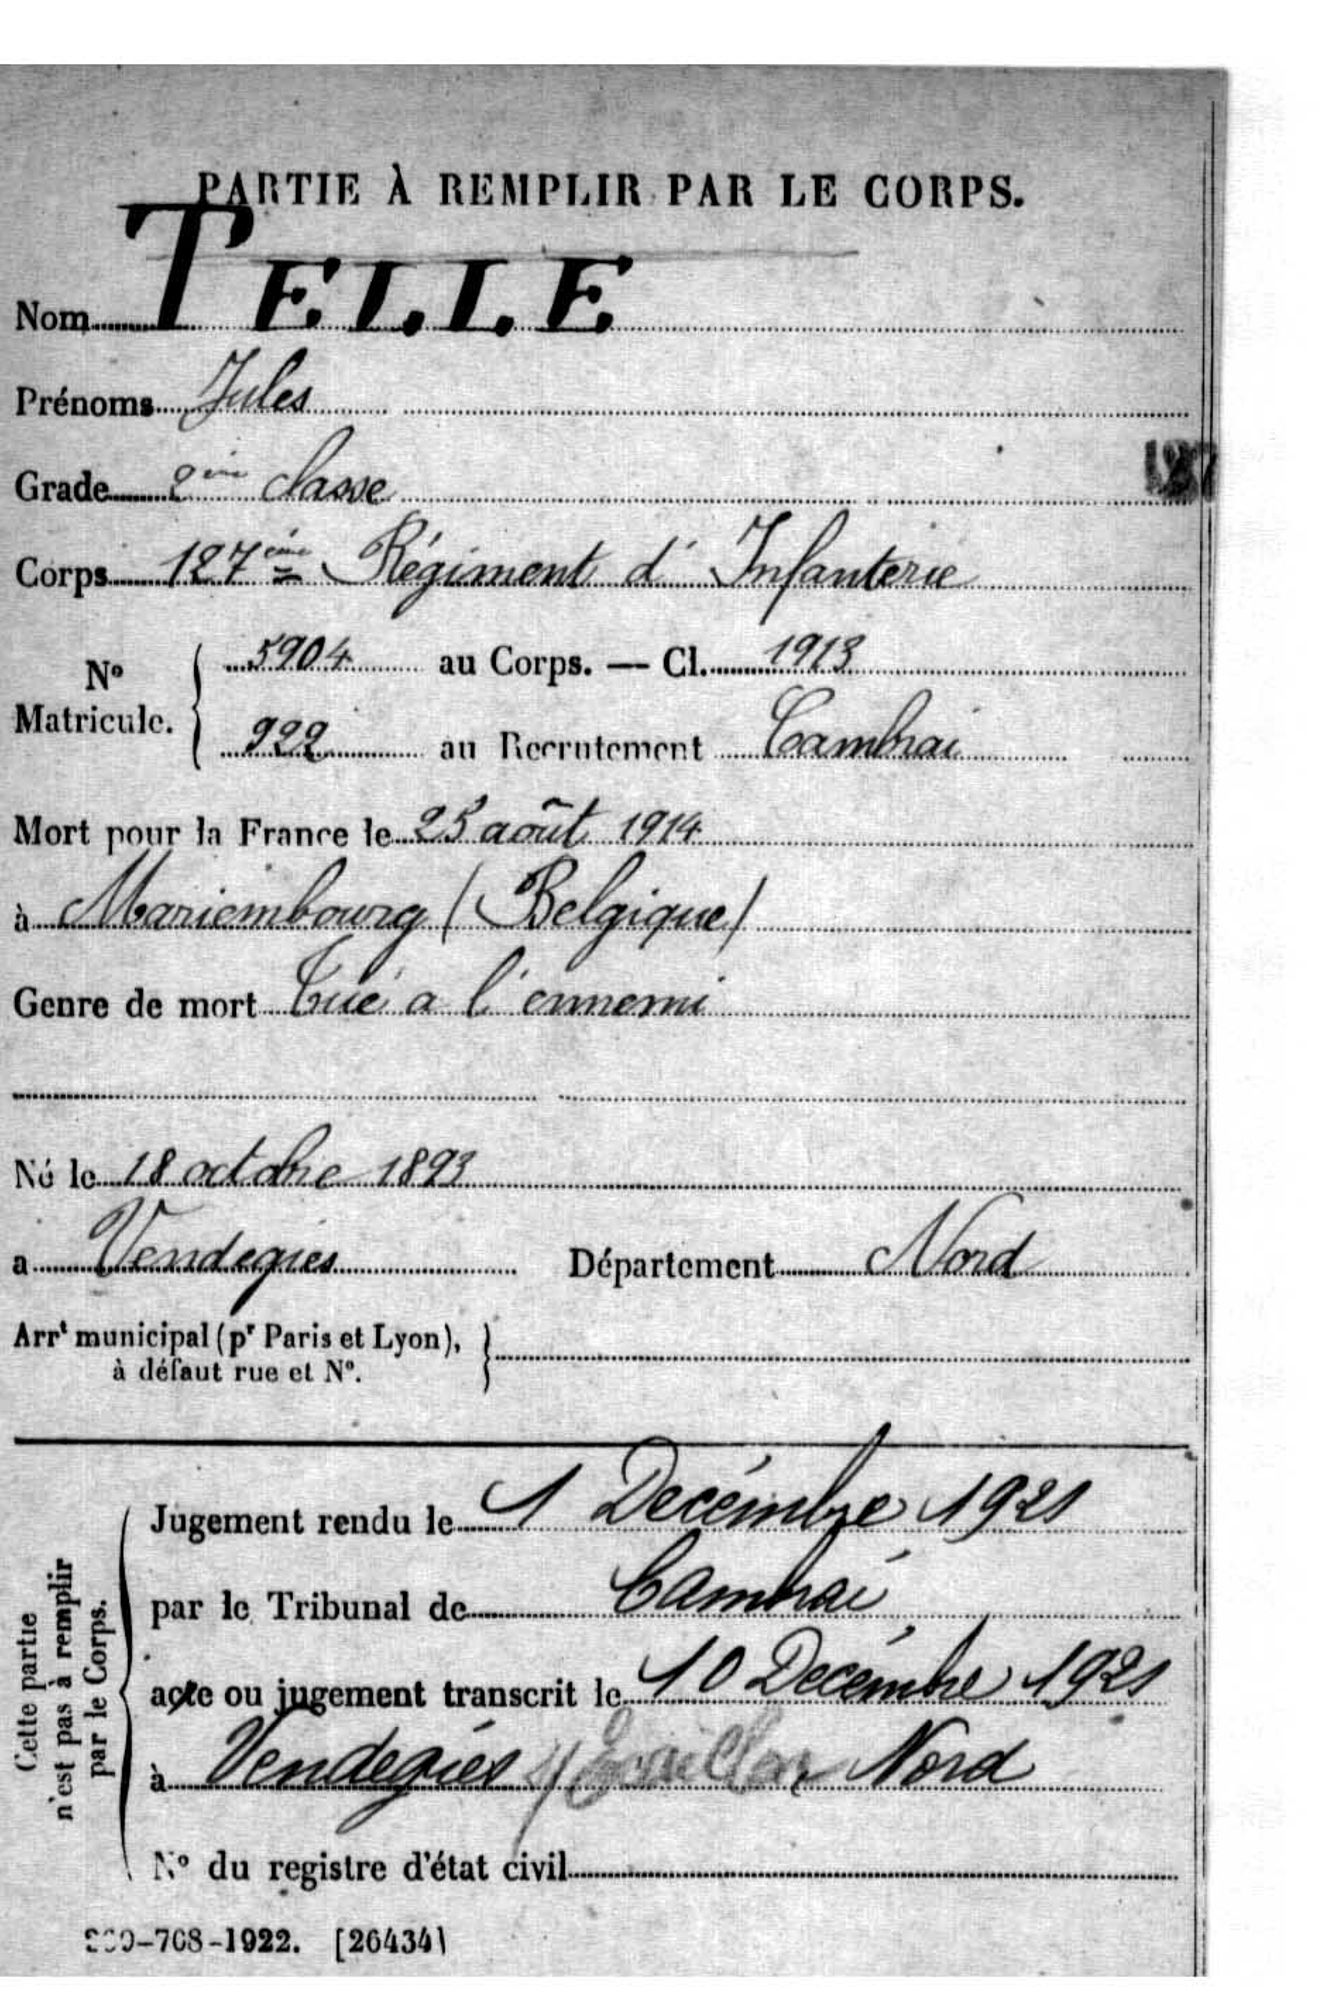 PARTIE À REMPLIR PAR LE CORPS.
Nom TELLE
Prénoms Jules
Grade 2ème classe
127
Corps 127ème Régiment d'Infanterie
N° Matricule. 5904 au Corps. — Cl. 1913
922 au Recrutement Cambrai
Mort pour la France le 25 août 1914
à Mariembourg (Belgique)
Genre de mort Tué a l'ennemi
Né le 18 octobre 1893
a Vendegies Département Nord
Arrt municipal (pr Paris et Lyon),
à défaut rue et N°.
Cette partie n'est pas à remplir par le Corps.
Jugement rendu le 1 Decémbre 1921
par le Tribunal de Cambrai
acte ou jugement transcrit le 10 Decémbre 1921
à Vendegiés s/ Ecaillon Nord
N° du registre d'état civil
-708-1922. [26434]